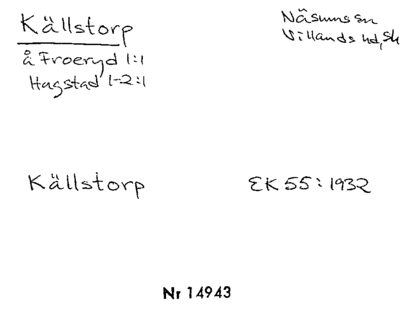 Källstorp
å Froeryd 1:1
Hagstad 1-2:1
Näsums sn
Villands hd, Sk
Källstorp
EK 55: 1932
Nr 14943